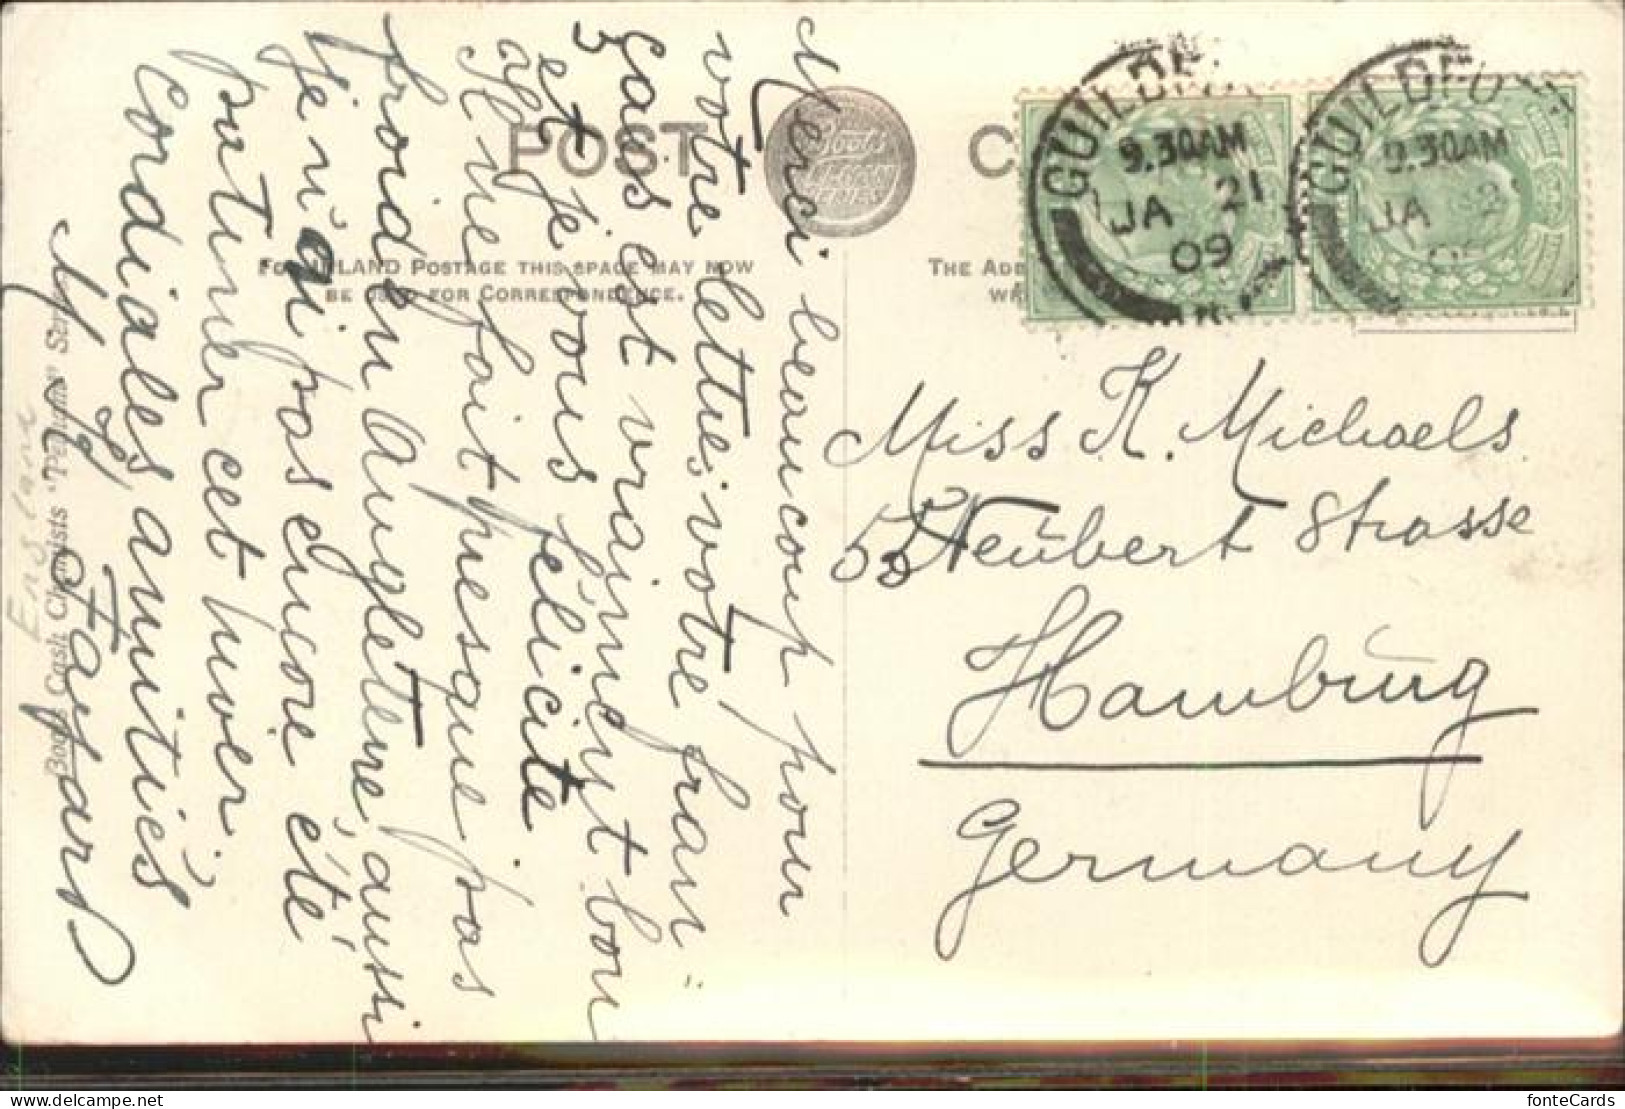 POST C
Boots
PELHAM
SERIES
FOR INLAND POSTAGE THIS SPACE MAY NOW
BE USED FOR CORRESPONDENCE.
THE ADD
WR
GUILDFO
9.30AM
JA 21
09
GUILDFO
9.30AM
JA 2
09
Merci beaucoup pour
votre lettre, votre fran-
çais est vraiment bon
et je vous félicite.
Il ne fait presque pas
froid en Angleterre, aussi
je n'ai pas encore été
patiner cet hiver.
Cordiales amitiés
Miss K. Michaels
55 Neubert Strasse
Hamburg
Germany
Boots Cash Chemists "Pelham" Series
England
www.delcampe.net
fonteCards